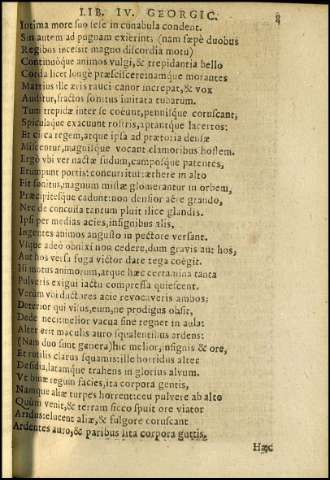 LIB. IV. GEORGIC.
Intima more suo sese in cunabula condent.
Sin autem ad pugnam exierint; (nam sæpè duobus
Regibus incessit magno discordia motu)
Continoòque animos vulgi, & trepidantia bello
Corda licet longè præsciscere: namque morantes
Martius ille æris rauci canor increpat, & vox
Auditur, fractos sonitus imitata tubarum.
Tum trepidæ inter se coëunt, pennisque coruscant,
Spiculaque exacuunt rostris, aptantque lacertos:
Et circa regem, atque ipsa ad prætoria densæ
Miscentur, magnisque vocant clamoribus hostem.
Ergò vbi ver nactæ sudum, camposque patentes,
Erumpunt portis: concurritur: æthere in alto
Fit sonitus, magnum mistæ glomerantur in orbem,
Præcipitesque cadunt: non densior aëre grando,
Nec de concussa tantum pluit ilice glandis.
Ipsi per medias acies, insignibus alis,
Ingentes animos angusto in pectore versant.
Vsque adeo obnixi non cedere, dum gravis aut hos,
Aut hos versa fuga victor dare terga coëgit.
Hi motus animorum, atque hæc certamina tanta
Pulveris exigui iactu compressa quiescent.
Verùm vbi ductores acie revocaveris ambos:
Deterior qui visus, eum, ne prodigus obsit,
Dede neci: melior vacua sine regnet in aula:
Alter erit maculis auro squalentibus ardens:
(Nam duo sunt genera) hic melior, insignis & ore,
Et rutilis clarus squamis: ille horridus alter
Desidia, lacamque trahens in glorius alvum.
Vt binæ regum facies, ita corpora gentis,
Namque aliæ turpes horrent: ceu pulvere ab alto
Quùm venit, & terram sicco spuit ore viator
Aridus: elucent aliæ, & fulgore coruscant
Ardentes auro, & paribus lita corpora guttis.
Hæc